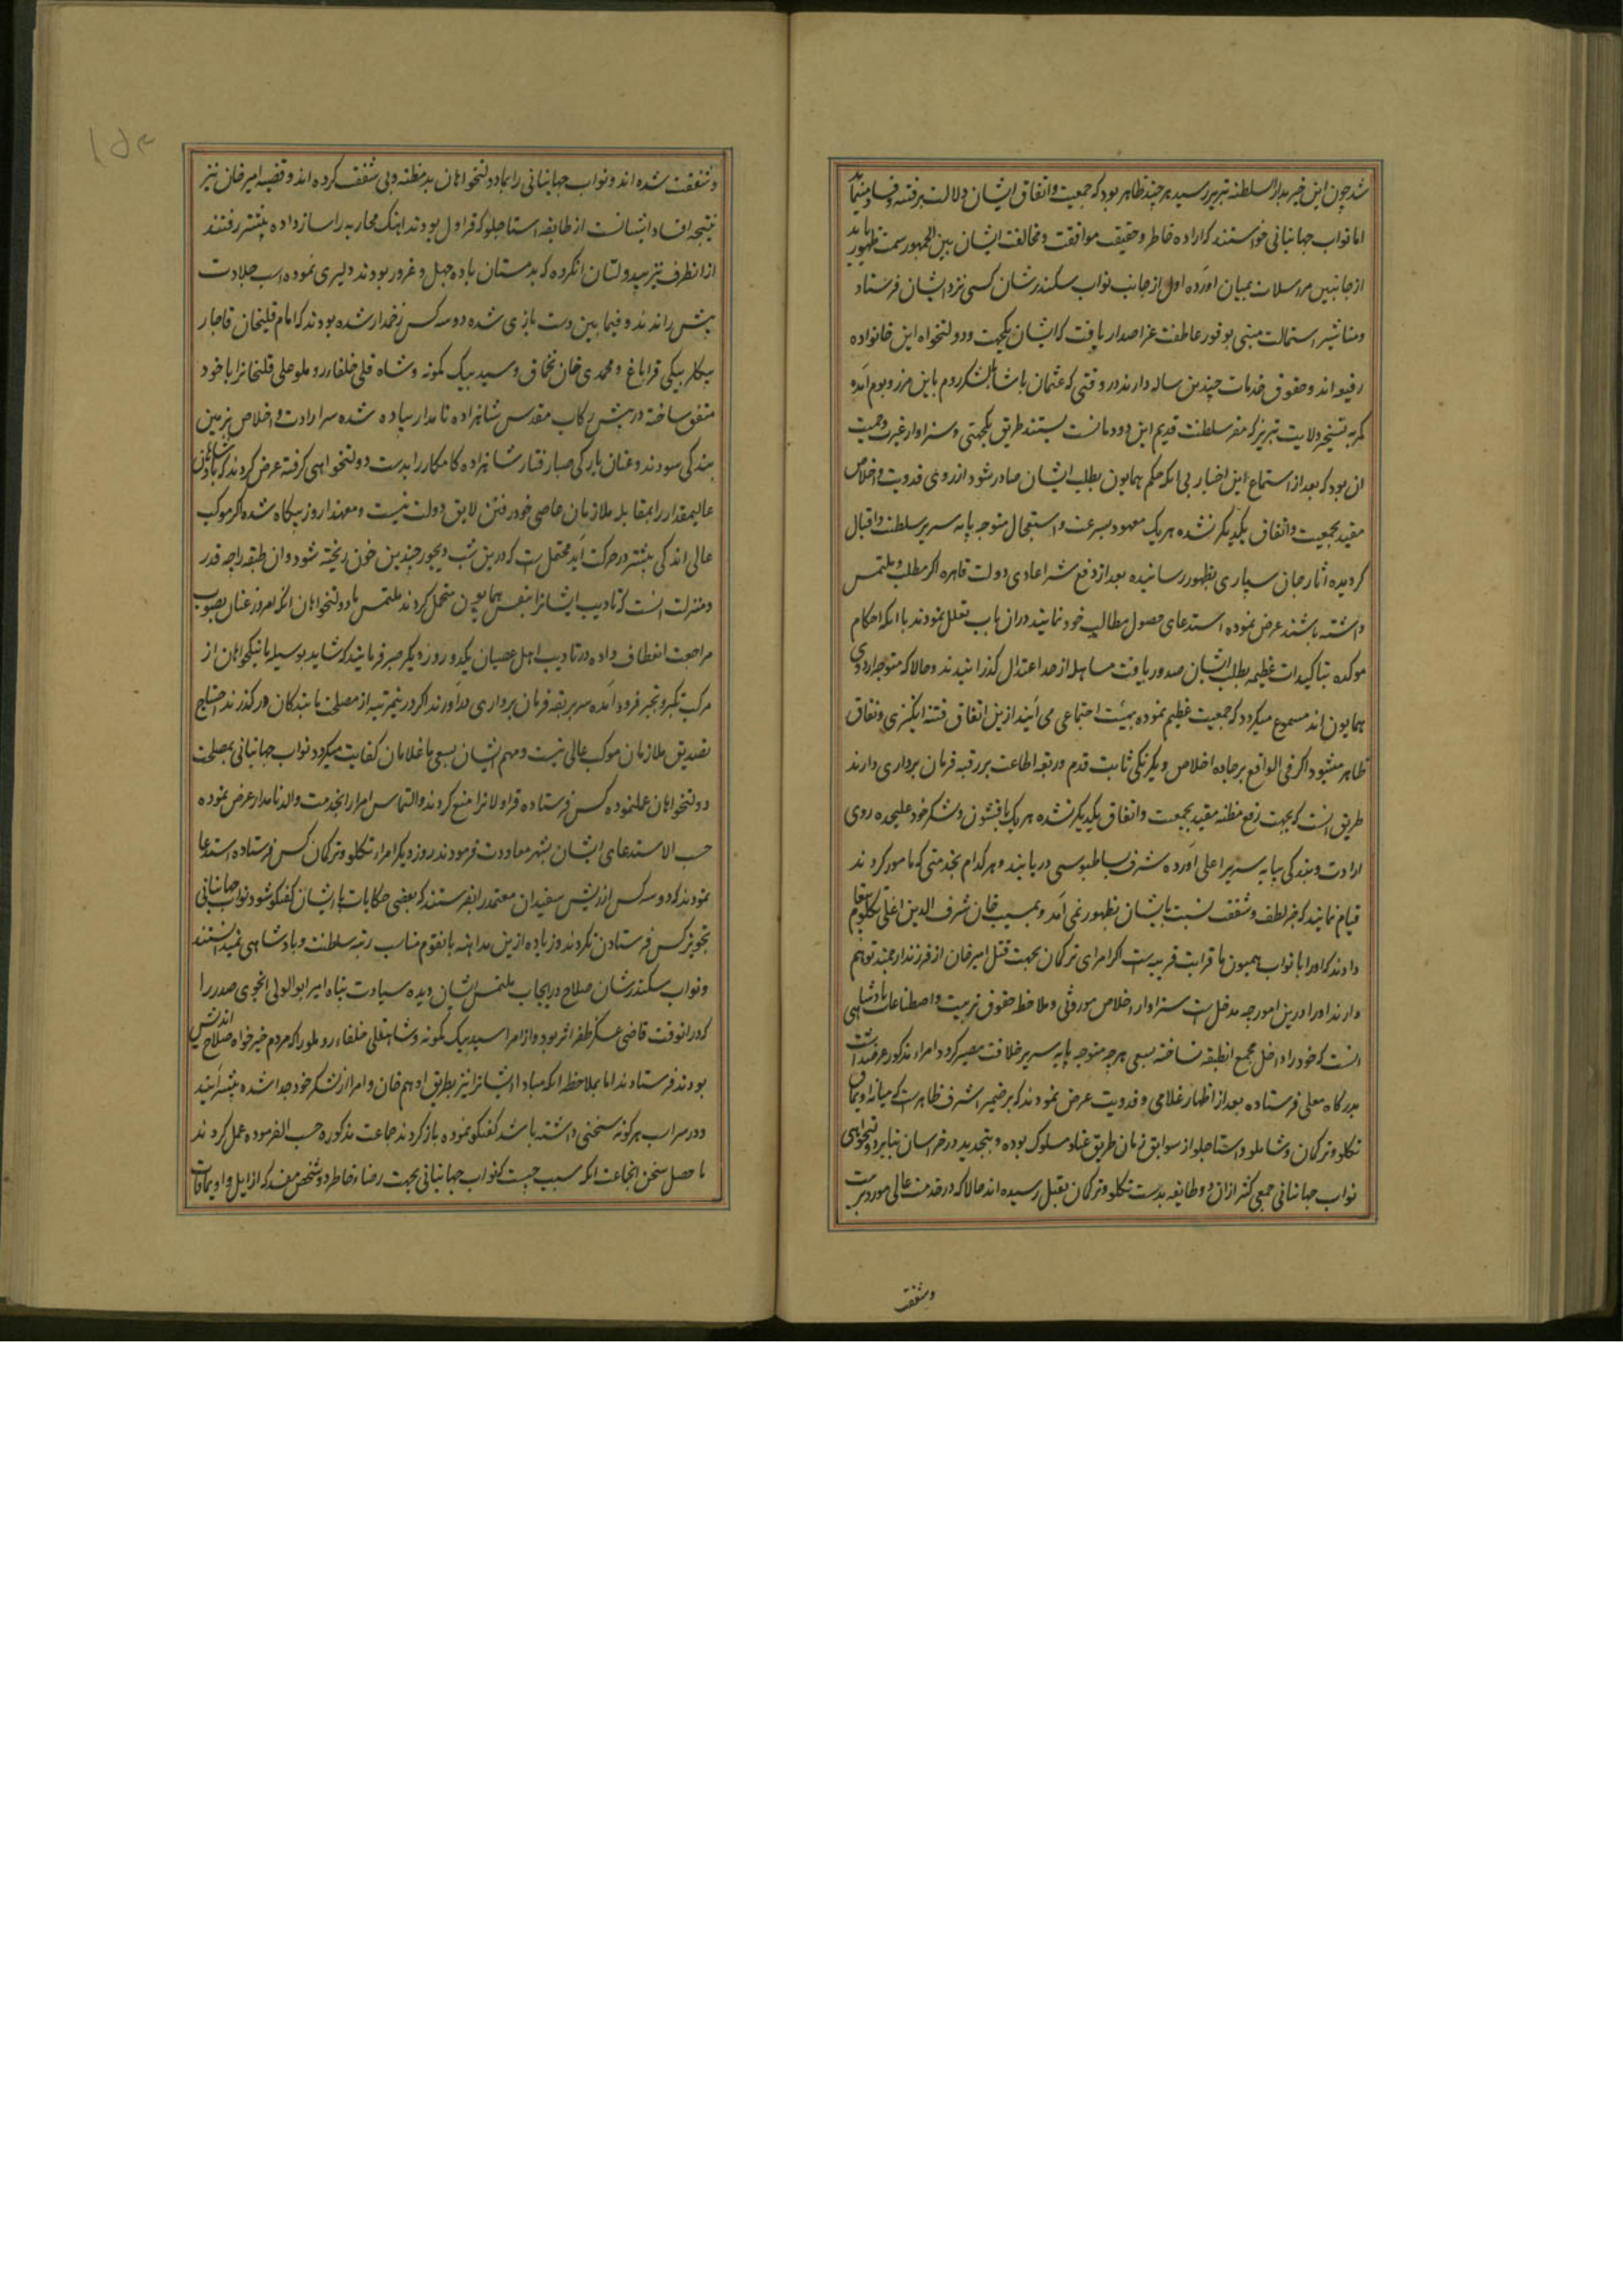 شد چون این خبر بدار السلطنه تبریز رسید هر چند ظاهر بود که جمعیت و اتفاق ایشان دلالت بر فتنه و فساد مینماید
اما نواب جهانبانی خواستند که اراده خاطر و حقیقت موافقت و مخالفت ایشان بین الجمهور سمت ظهور یابد
از جانبین مرسلات بمیان آورده اول از جانب نواب سکندرشان کسی نزد ایشان فرستاد
و مناشیر استمالت مبنی بوفور عاطفت عز اصدار یافت که ایشان یکجهت و دولتخواه این خانواده
رفیعه اند و حقوق خدمات چندین ساله دارند در وقتی که عثمان پاشا با لشکر روم باین مرز و بوم آمده
کمر به تسخیر ولایت تبریز که مقر سلطنت قدیم این دودمانست بستند طریق یکجهتی و سزاوار غیرت و حمیت
آن بود که بعد از استماع این اخبار بی آنکه حکم همایون بطلب ایشان صادر شود از روی فدویت و اخلاص
مقید بجمعیت و اتفاق یکدیگر نشده هر یک معهود بسرعت و استعجال متوجه پایه سریر سلطنت و اقبال
گردیده آثار جان سپاری بظهور رسانیده بعد از دفع شر اعادی دولت قاهره اگر مطلب و ملتمس
داشته باشند عرض نموده استدعای حصول مطالب خود نمایند در آن باب تعلل نمودند با آنکه احکام
موکده بتاکیدات عظیمه بطلب ایشان صدور یافت مساهله از حد اعتدال گذرانیدند و حالا که متوجه اردوی
همایون اند مسموع میگردد که جمعیت عظیم نموده بهیئت اجتماعی می آیند ازین اتفاق فتنه انگیزی و نفاق
ظاهر میشود اگر فی الواقع بر جاده اخلاص و یکرنگی ثابت قدم و ربقه اطاعت بر رقبه فرمان برداری دارند
طریق آنست که بجهت رفع مظنه مقید بجمعیت و اتفاق یکدیگر نشده هر یک با قشون و لشکر خود علیحده روی
ارادت و بندگی بپایه سریر اعلی آورده شرف بساطبوسی دریابند و هر کدام بخدمتی که مامور گردند
قیام نمایند که جز لطف و شفقت نسبت بایشان بظهور نمی آمد و بمسیب خان شرف الدین اغلی تکلو پیغام
دادند که او را با نواب همیون ما قرابت قریبه است اگر امرای ترکمان بجهت قتل امیر خان از فرزند ارجمند توهم
دارند او را درین امور چه مدخل است سزاوار اخلاص موروثی و ملاحظه حقوق تربیت و اصطناعات پادشاهی
آنست که خود را داخل مجمع آنطبقه نساخته بسعی هر چه متوجه پایه سریر خلافت مصیر گردد امراء مذکور عرضه داشت
بدرگاه معلی فرستاده بعد از اظهار غلامی و فدویت عرض نمودند که بر ضمیر اشرف ظاهر است که میانه اویماق
تکلو و ترکمان و شاملو و استاجلو از سوابق زمان طریق عناد مسلوک بوده و بتجدید در خراسان بنابر دولتخواهی
نواب جهانبانی جمعی کثیر از آن دو طایفه بدست تکلو و ترکمان بقتل رسیده اند حالا که در خدمت عالی مورد تربیت
وشفقت
و شفقت شده اند و نواب جهانبانی را بما دولتخواهان بد مظنه و بی شفقت کرده اند و قضیه امیر خان نیز
نتیجه افساد ایشانست از طایفه استاجلو که قراول بودند آهنگ محاربه را ساز داده پیشتر رفتند
از آنطرف نیز بیدولتان که بدمستان باده جهل و غرور بودند دلیری نموده اسب جلادت
پیش راندند و فیمابین دست بازی شده دو سه کس زخمدار شده بودند که امام قلیخان قاجار
بیکلر بیکی قراباغ و محمدی خان تخماق و سید بیک کمونه و شاه قلی خلفاء روملو علی قلیخانرا با خود
متفق ساخته در پیش رکاب مقدس شاهزاده نامدار پیاده شده سر ارادت و اخلاص بزمین
بندگی سودند و عنان بارگی صبا رفتار شاهزاده کامکار را بدست دولتخواهی گرفته عرض کردند که پادشاهان
عالیمقدار را بمقابله ملازمان عاصی خود رفتن لایق دولت نیست و معهذا روز بیگاه شده اگر موکب
عالی اندکی پیشتر در حرکت آید محتمل است که درین شب دیجور چندین خون ریخته شود و آن طبقه را چه قدر
و منزلت آنست که تادیب ایشانرا بنفس همایون متحمل گردند ملتمس ما دولتخواهان آنکه امروز عنان بصوب
مراجعت انعطاف داده در تادیب اهل عصیان یکدو روز دیگر صبر فرمایند که شاید بوسیله ما نیکخواهان از
مرکب تکبر و تجبر فرود آمده سر بربقه فرمان برواری درآورند اگر درینمرتبه از مصلحت ما بندگان در گذرند احتیاج
تصدیق ملازمان موکب عالی نیست و مهم ایشان بسعی ما غلامان کفایت میگردد نواب جهانبانی بمصلحت
دولتخواهان عملنموده کس فرستاده قراولانرا منع کردند و التماس امرا را بخدمت والد نامدار عرض نموده
حسب الاستدعای ایشان بشهر معاودت فرمودند روز دیگر امراء تکلو و ترکمان کس فرستاده استدعا
نمودند که دو سه کس از ریش سفیدان معتمد را بفرستند که بعضی حکایات با ایشان گفتگو شود نواب جهانبانی
تجویز کس فرستادن نکردند و زیاده ازین مداهنه با آنقوم مناسب رتبه سلطنت و پادشاهی نمیدانستند
و نواب سکندرشان صلاح در ایجاب ملتمس ایشان دیده سیادت پناه امیر ابوالولی انجوی صدر را
که در آنوقت قاضی عسکر ظفر اثر بود و از امرا سید بیک کمونه و شاهقلی خلفاء روملو را که مردم خیر خواه صلاح اندیش
بودند فرستادند اما بملاحظه آنکه مبادا ایشانرا نیز بطریق ادهم خان و امرا از لشکر خود جدا شده پیشتر آیند
و در سراب هر گونه سخنی داشته باشد گفتگو نموده باز گردند جماعت مذکوره حسب الفرموده عمل کردند
ماحصل سخن آنجماعت آنکه سبب چیست که نواب جهانبانی بجهت رضاء خاطر دو شخص مفسد که از ایل و اویماقات